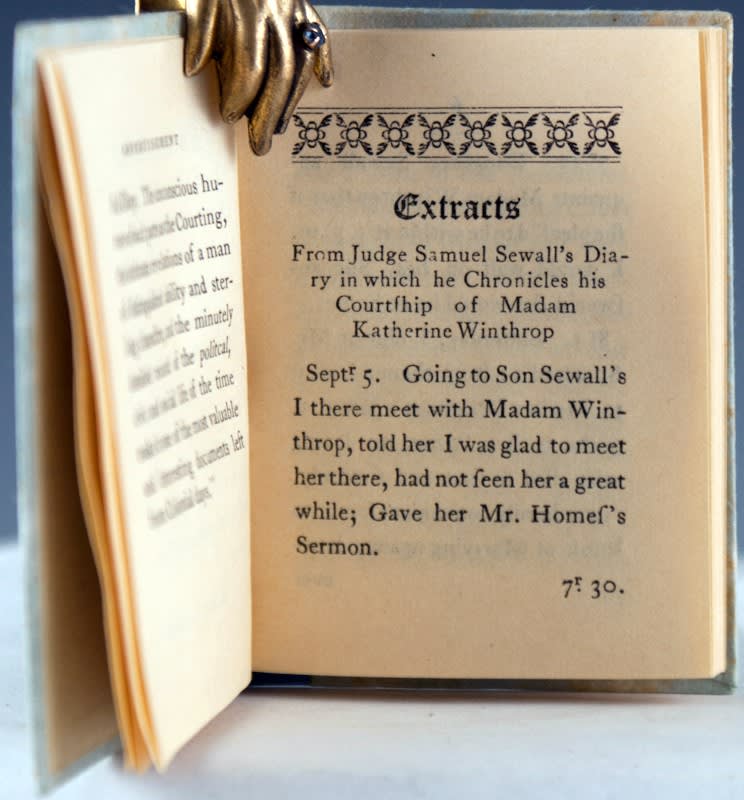 ADVERTISEMENT
The conscious hu-
the Courting,
revelations of a man
ability and ster-
and the minutely
record of the politcal,
and social life of the time
of the most valuable
and interesting documents left
from Colonial days."
Extracts
From Judge Samuel Sewall's Dia-
ry in which he Chronicles his
Courtſhip of Madam
Katherine Winthrop
Septr 5. Going to Son Sewall's
I there meet with Madam Win-
throp, told her I was glad to meet
her there, had not ſeen her a great
while; Gave her Mr. Homeſ's
Sermon.
7r 30.